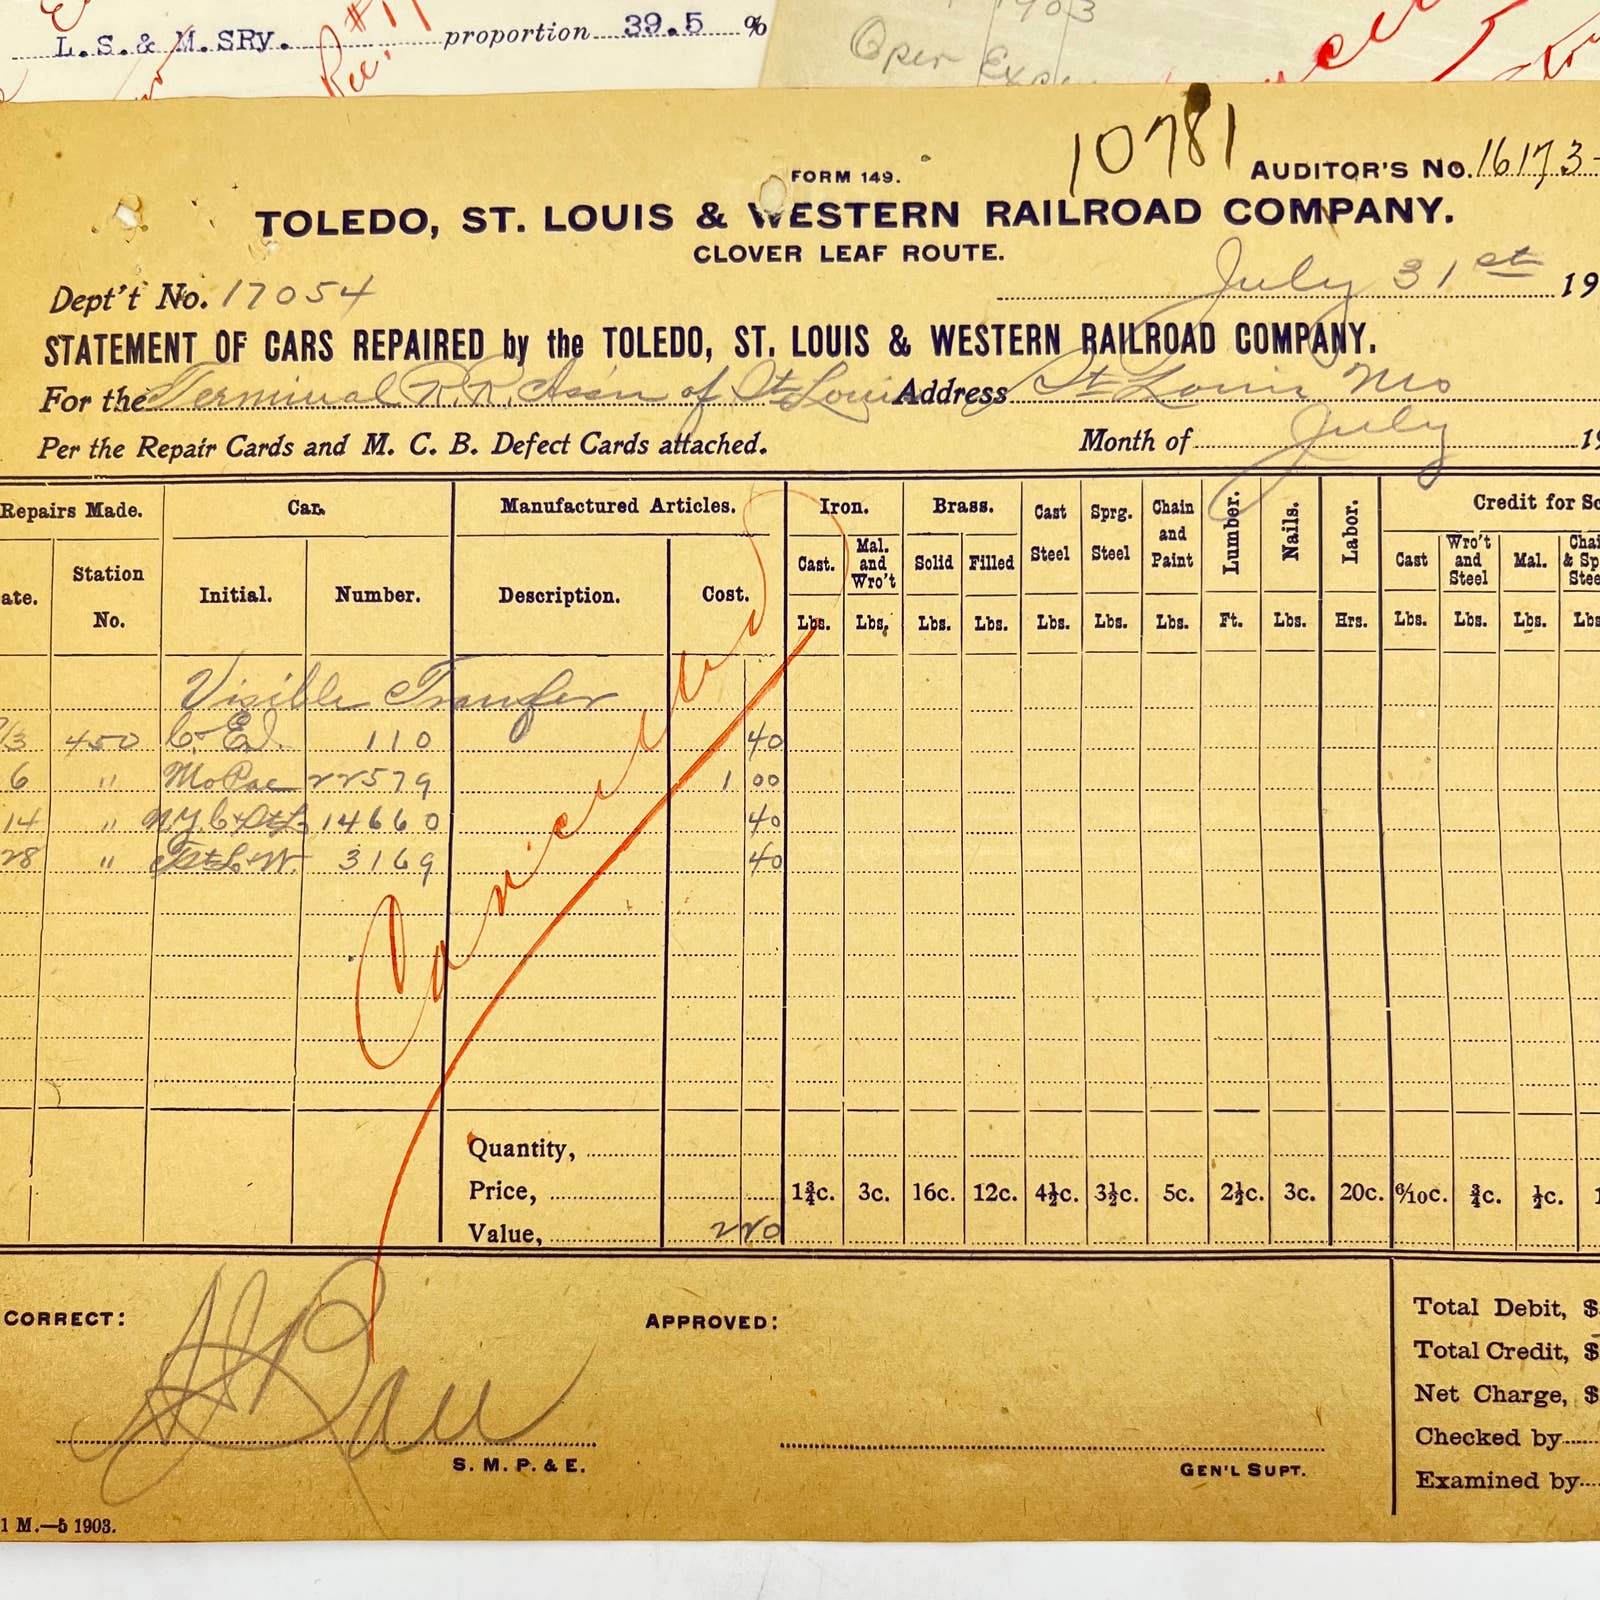 L.S.& M.SRy. proportion 39.5 %
Rec. #
1903
Oper Exp
10781
FORM 149.
AUDITOR'S No. 16173
TOLEDO, ST. LOUIS & WESTERN RAILROAD COMPANY.
CLOVER LEAF ROUTE.
Dept't No. 17054
July 31st 19
STATEMENT OF CARS REPAIRED by the TOLEDO, ST. LOUIS & WESTERN RAILROAD COMPANY.
For the Terminal R.R. Ass'n of St Louis Address St Louis Mo
Per the Repair Cards and M. C. B. Defect Cards attached. Month of July 19
Repairs Made. Car. Manufactured Articles. Iron. Brass. Cast Steel Sprg. Steel Chain and Paint Lumber. Nails. Labor. Credit for Sc
ate. Station No. Initial. Number. Description. Cost. Cast. Mal. and Wro't Solid Filled Cast Wro't and Steel Mal. Chai & Sp Stee
Lbs. Lbs. Lbs. Lbs. Lbs. Lbs. Lbs. Ft. Lbs. Hrs. Lbs. Lbs. Lbs. Lbs
Visible Transfer
/3 450 C. & E.I. 110 40
6 " MoPac 22579 1 00
14 " N.Y.C & St L 14660 40
28 " T St L & W. 3169 40
Cancelled
Quantity,
Price, 1¾c. 3c. 16c. 12c. 4½c. 3½c. 5c. 2½c. 3c. 20c. 6/10c. ¾c. ½c. 1
Value, 2 20
CORRECT: APPROVED: Total Debit, $
Total Credit, $
Net Charge, $
Checked by
S. M. P. & E. GEN'L SUPT. Examined by
1 M.—5 1903.